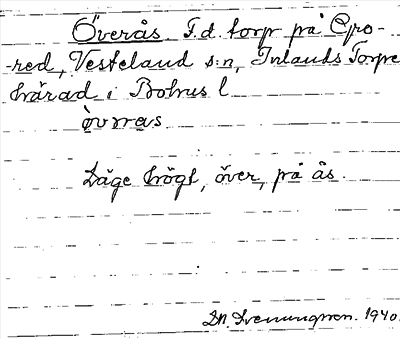 Överås. F.d. torp på Gro-
-red, Vesteland s:n, Inlands Torpe
härad i Bohus l
òvrras
Läge högt, över, på ås.
1940.